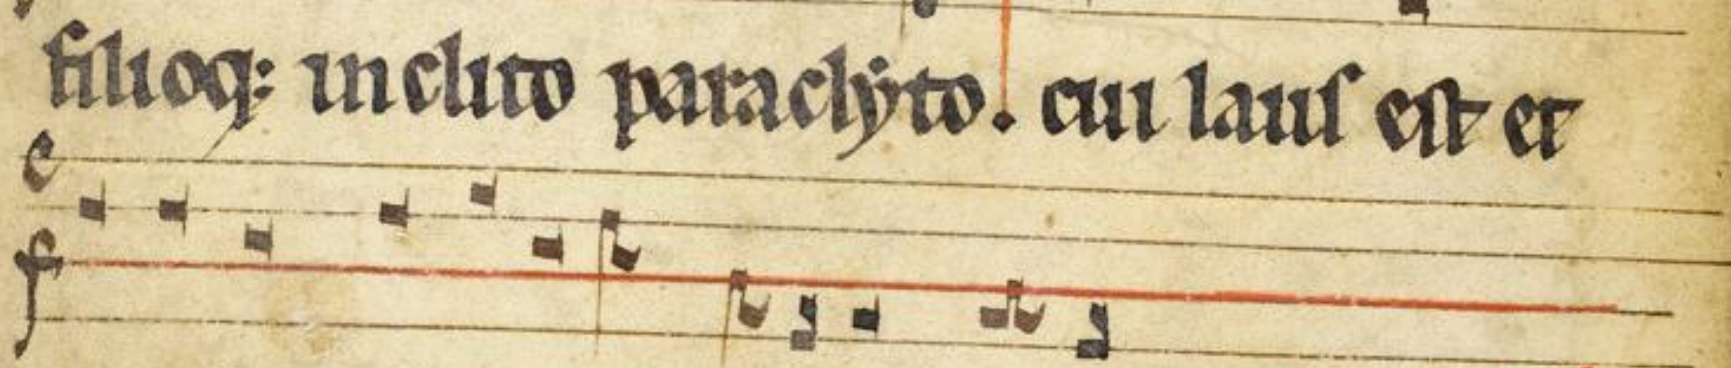 filioq: inclito paraclyto. cui laus est et
c
f